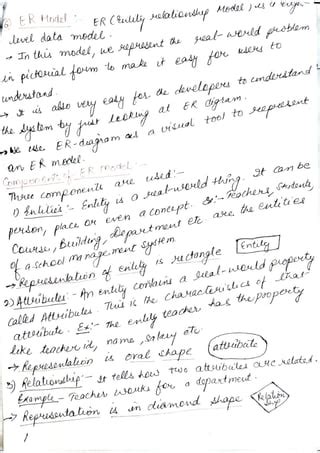 ER Model :- ER (Entity relationship Model) is a high-
level data model.
→ In this model, we represent the real-world problem
in pictorial form to make it easy for users to
understand.
→ It is also very easy for the developers to understand
the system by just looking at ER digram.
→ We use ER-diagram as a visual tool to represent
an ER model.
Components of ER model :-
Three components are used :-
1) Entities :- Entity is a real-world thing. It can be
person, place or even a concept. Ex:- Teachers, Students,
Course, Building, department etc are the entities
of a school management system.
→ Representation of entity is rectangle Entity
2) Attributes :- An entity contains a real-world property
called Attributes. This is the characteristics of that
attribute. Ex:- the entity teacher has the property
like teacher id, name, salary etc.
→ Representation is oval shape attribute
3) Relationship :- It tells how two attributes are related.
Example - Teacher works for a department.
→ Representation is in diamond shape Relation
ship